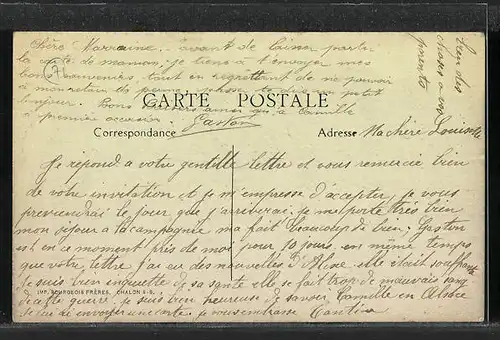 Chère Marraine. avant de laisser partir
la carte de maman, je tiens à t'envoyer mes
bons souvenirs, tout en regrettant de ne pouvoir
petit
bonjour. Camille
à première occasion. Gaston
bien des
choses a vos
parents
71
CARTE POSTALE
Correspondance
Adresse Ma chère Louise
Je répond a votre gentille lettre et vous remercie bien
de votre invitation et je m'empresse d'accepter, je vous
previendrai le jour que j'arriverai. je me porte très bien
mon séjour a la campagnie ma fait beaucoup de bien, Gaston
est en ce moment près de moi pour 10 jours. en même temps
que votre lettre j'ai eu des nouvelles d'Aline elle était souffrante
je suis bien inquiette de sa santé elle se fait trop de mauvais sang
de cette guerre. je suis bien heureuse de savoir Camille en Alsace
de envoyer une carte. je vous embrasse
IMP. BOURGEOIS FRÈRES, CHALON S-S.